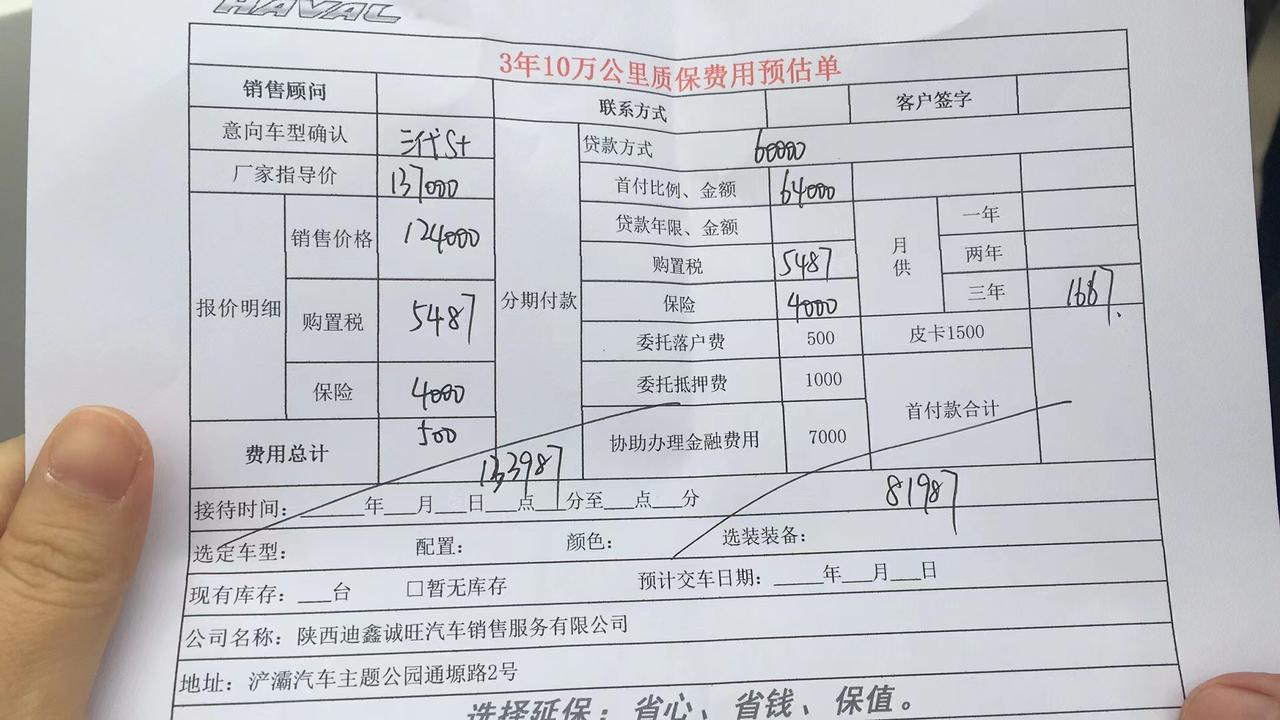 HAVAL
3年10万公里质保费用预估单
销售顾问 联系方式 客户签字
意向车型确认 三代S+ 贷款方式 60000
厂家指导价 137000 首付比例、金额 64000
报价明细 销售价格 124000 分期付款 贷款年限、金额 月供 一年
购置税 5487 两年
购置税 5487 保险 4000 三年 1667
委托落户费 500 皮卡1500
保险 4000 委托抵押费 1000 首付款合计
费用总计 500 协助办理金融费用 7000
133987 81987
接待时间：______年___月___日___点___分至___点___分
选定车型： 配置： 颜色： 选装装备：
现有库存：___台 □暂无库存 预计交车日期：_____年___月___日
公司名称：陕西迪鑫诚旺汽车销售服务有限公司
地址：浐灞汽车主题公园通塬路2号
选择延保：省心、省钱、保值。